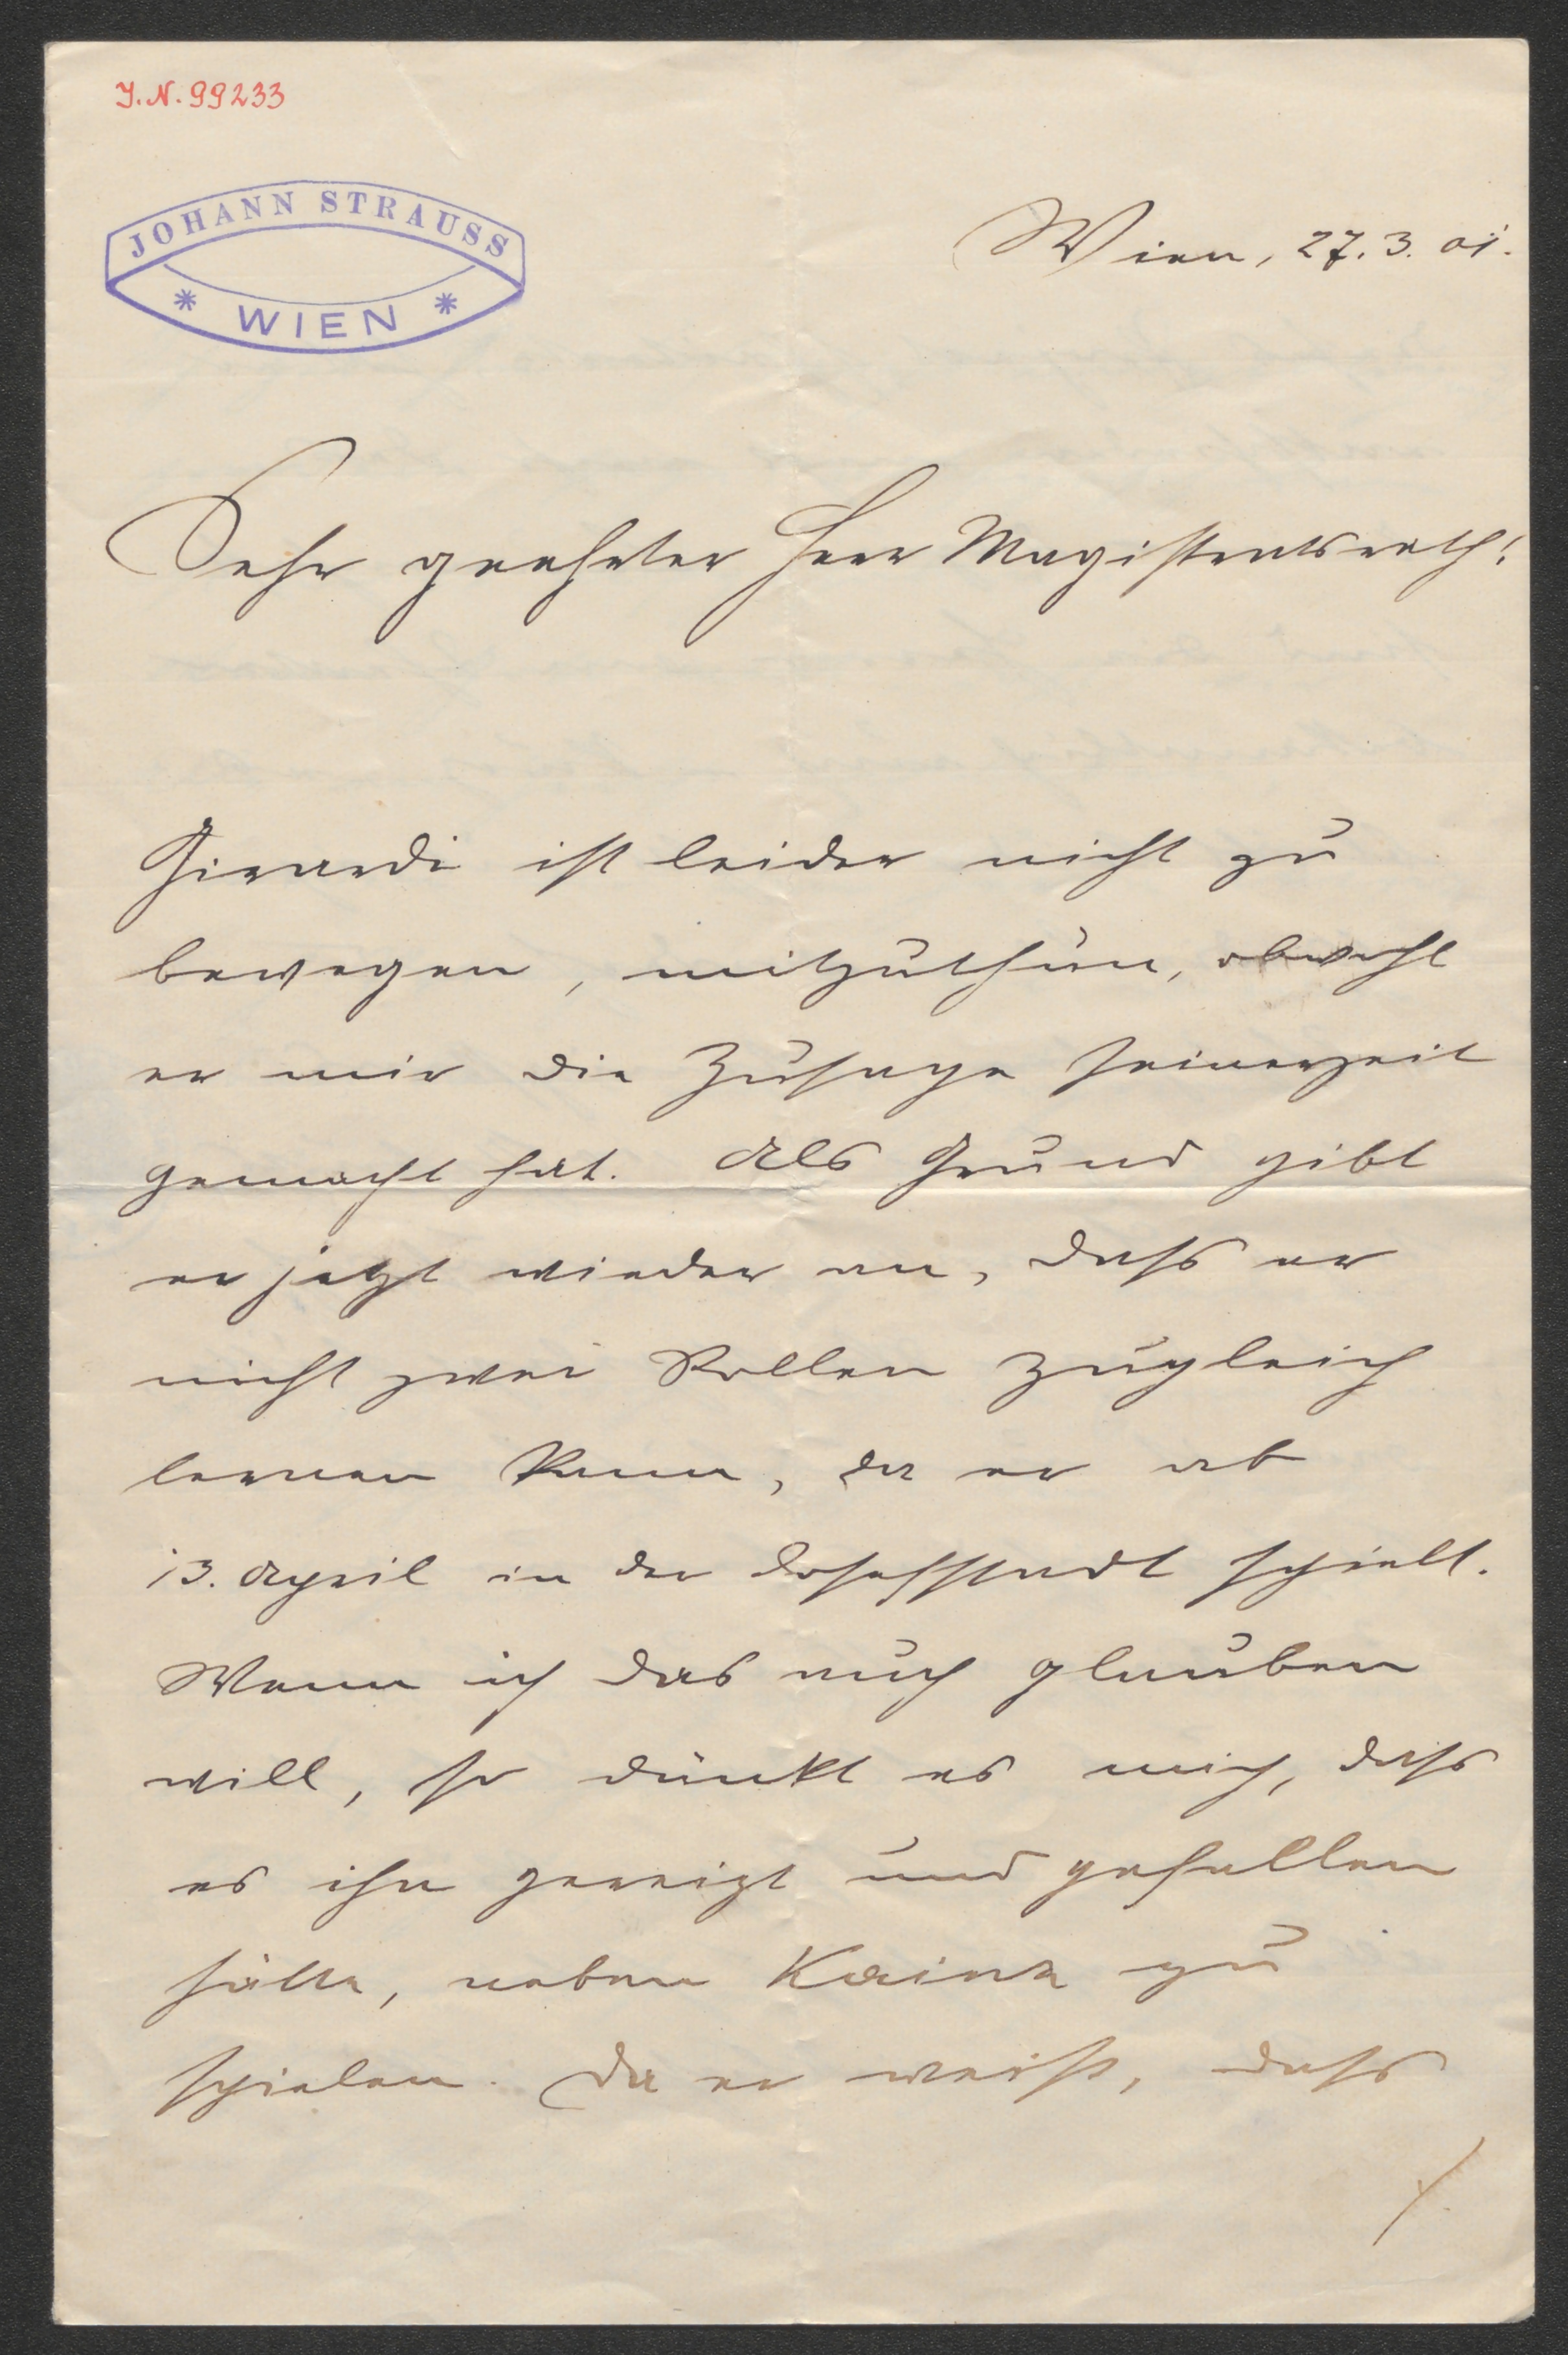 J.N. 99233
JOHANN STRAUSS
* WIEN *
Wien, 27. 3. 01.
Sehr geehrter Herr Magistratsrath!
Girardi ist leider nicht zu
bewegen, mitzuthun, obwohl
er mir die Zusage seinerzeit
gemacht hat. Als Grund gibt
er jetzt wieder an, dass er
nicht zwei Rollen zugleich
lernen kann, da er ab
13. April in der Josefstadt spielt.
Wenn ich das auch glauben
will, so dünkt es mich, dass
es ihn gereizt und gefallen
hätte, neben Kainz zu
spielen. Da er weiß, dass